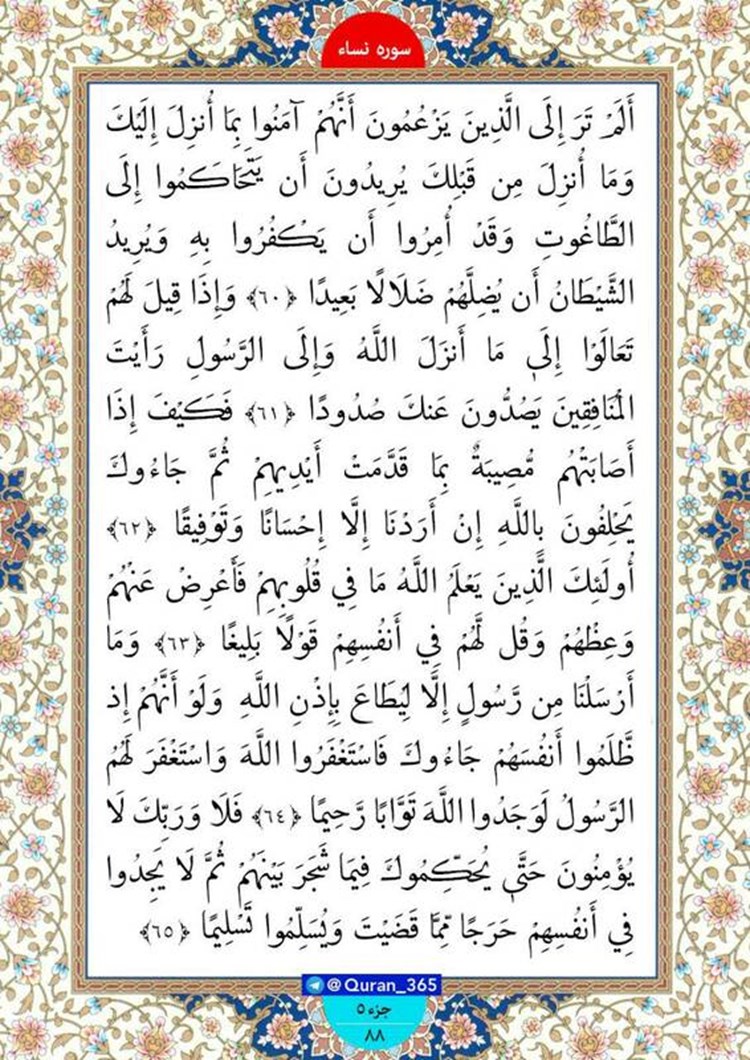 سوره نساء
أَلَمْ تَرَ إِلَى الَّذِينَ يَزْعُمُونَ أَنَّهُمْ آمَنُوا بِمَا أُنزِلَ إِلَيْكَ
وَمَا أُنزِلَ مِن قَبْلِكَ يُرِيدُونَ أَن يَتَحَاكَمُوا إِلَى
الطَّاغُوتِ وَقَدْ أُمِرُوا أَن يَكْفُرُوا بِهِ وَيُرِيدُ
الشَّيْطَانُ أَن يُضِلَّهُمْ ضَلَالًا بَعِيدًا ﴿٦٠﴾ وَإِذَا قِيلَ لَهُمْ
تَعَالَوْا إِلَىٰ مَا أَنزَلَ اللَّهُ وَإِلَى الرَّسُولِ رَأَيْتَ
الْمُنَافِقِينَ يَصُدُّونَ عَنكَ صُدُودًا ﴿٦١﴾ فَكَيْفَ إِذَا
أَصَابَتْهُم مُّصِيبَةٌ بِمَا قَدَّمَتْ أَيْدِيهِمْ ثُمَّ جَاءُوكَ
يَحْلِفُونَ بِاللَّهِ إِنْ أَرَدْنَا إِلَّا إِحْسَانًا وَتَوْفِيقًا ﴿٦٢﴾
أُولَٰئِكَ الَّذِينَ يَعْلَمُ اللَّهُ مَا فِي قُلُوبِهِمْ فَأَعْرِضْ عَنْهُمْ
وَعِظْهُمْ وَقُل لَّهُمْ فِي أَنفُسِهِمْ قَوْلًا بَلِيغًا ﴿٦٣﴾ وَمَا
أَرْسَلْنَا مِن رَّسُولٍ إِلَّا لِيُطَاعَ بِإِذْنِ اللَّهِ وَلَوْ أَنَّهُمْ إِذ
ظَّلَمُوا أَنفُسَهُمْ جَاءُوكَ فَاسْتَغْفَرُوا اللَّهَ وَاسْتَغْفَرَ لَهُمُ
الرَّسُولُ لَوَجَدُوا اللَّهَ تَوَّابًا رَّحِيمًا ﴿٦٤﴾ فَلَا وَرَبِّكَ لَا
يُؤْمِنُونَ حَتَّىٰ يُحَكِّمُوكَ فِيمَا شَجَرَ بَيْنَهُمْ ثُمَّ لَا يَجِدُوا
فِي أَنفُسِهِمْ حَرَجًا مِّمَّا قَضَيْتَ وَيُسَلِّمُوا تَسْلِيمًا ﴿٦٥﴾
@Quran_365
جزء ٥
٨٨